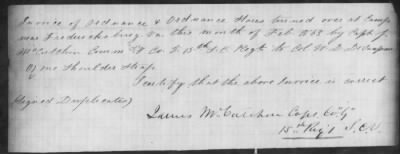 Invoice of Ordnance & Ordnance Stores turned over at Camp
near Fredericksburg Va this month of Feb 1863 by Capt J.
McCutchen Comm'd'g Co. G 15th S.C. Regt to Col W. D. DeSaussure
One Shoulder Strap
I certify that the above Invoice is correct
(Signed Duplicates)
James McCutchen Capt. Co. G
15th Reg't S.C.V.